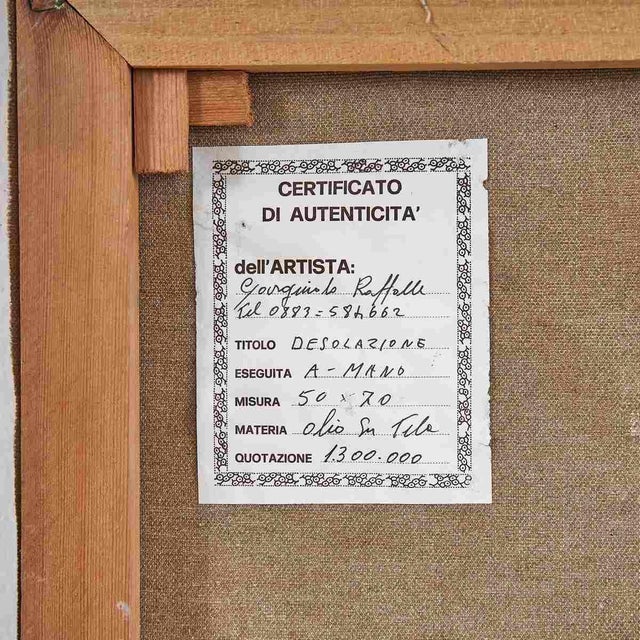 CERTIFICATO
DI AUTENTICITA'
dell'ARTISTA:
Raffaele
Tel 0883=584662
TITOLO DESOLAZIONE
ESEGUITA A-MANO
MISURA 50 x 70
MATERIA olio su Tela
QUOTAZIONE 1.300.000